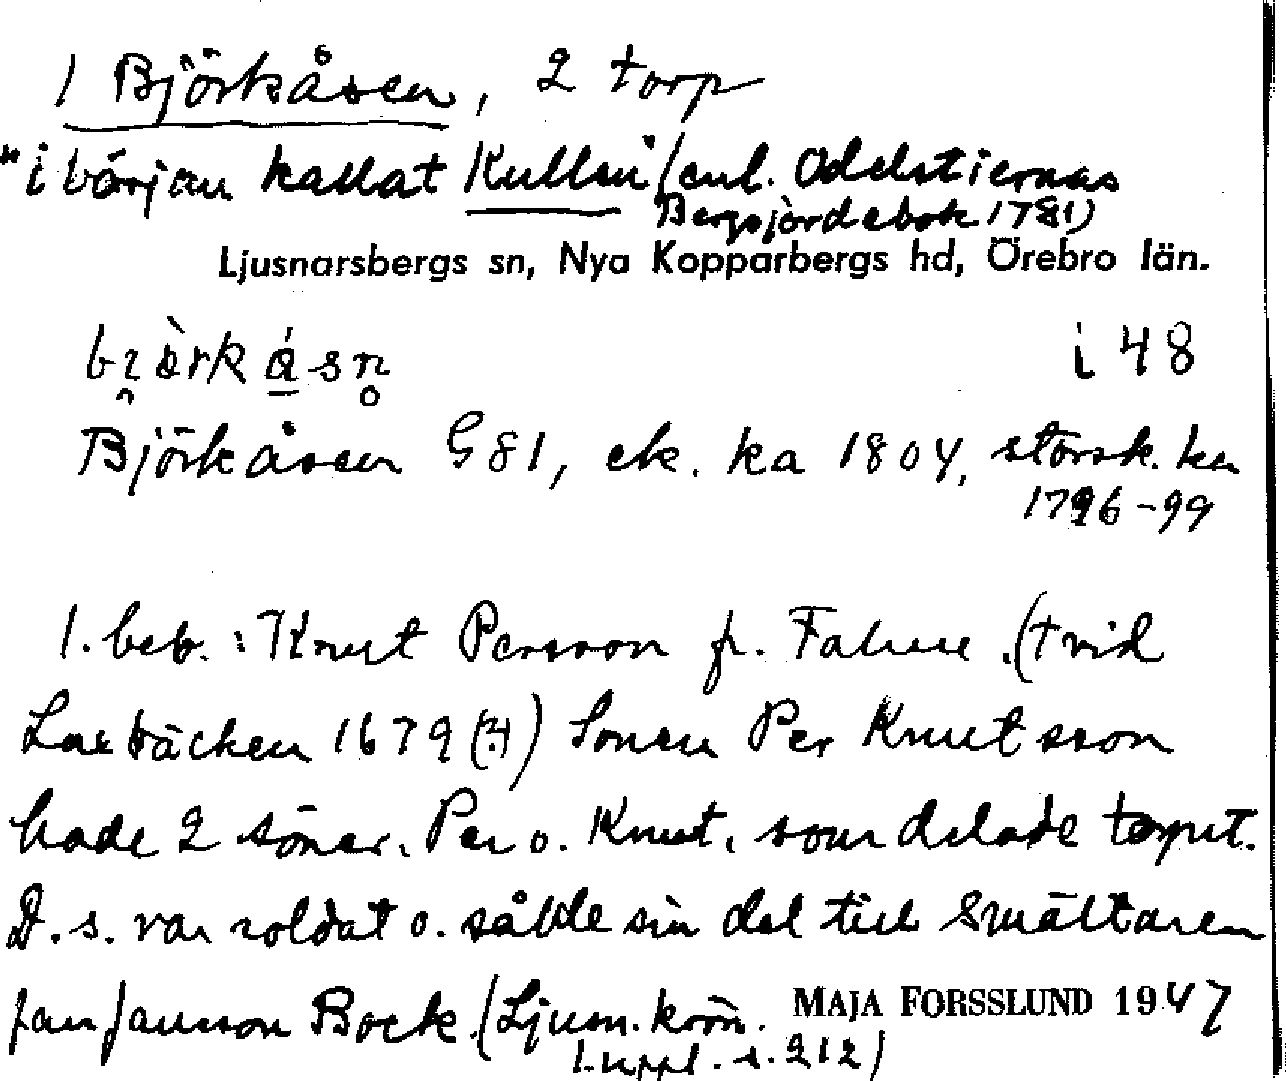 1 Björkåsen, 2 torp
"i början kallat Kullen" (enl. Odelstiernas
Bergsjordebok 1781)
Ljusnarsbergs sn, Nya Kopparbergs hd, Örebro län.
i 48
Björkåsen G 81, ek. ka 1804, storsk. ka
1796-99
1. beb.: Knut Persson fr. Falun. (tvid
Laxbäcken 1679 (?)) Sonen Per Knutsson
hade 2 söner, Per o. Knut, som delade torpet.
D. s. var soldat o. sålde sin del till Smältaren
Jan Jansson Bock. (Ljusn. krön.
1. uppl. s. 212)
MAJA FORSSLUND 1947